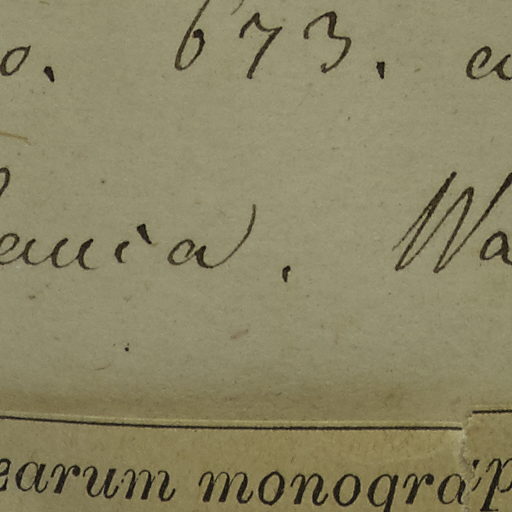 o. 673. a
auca. Wa
earum monograp